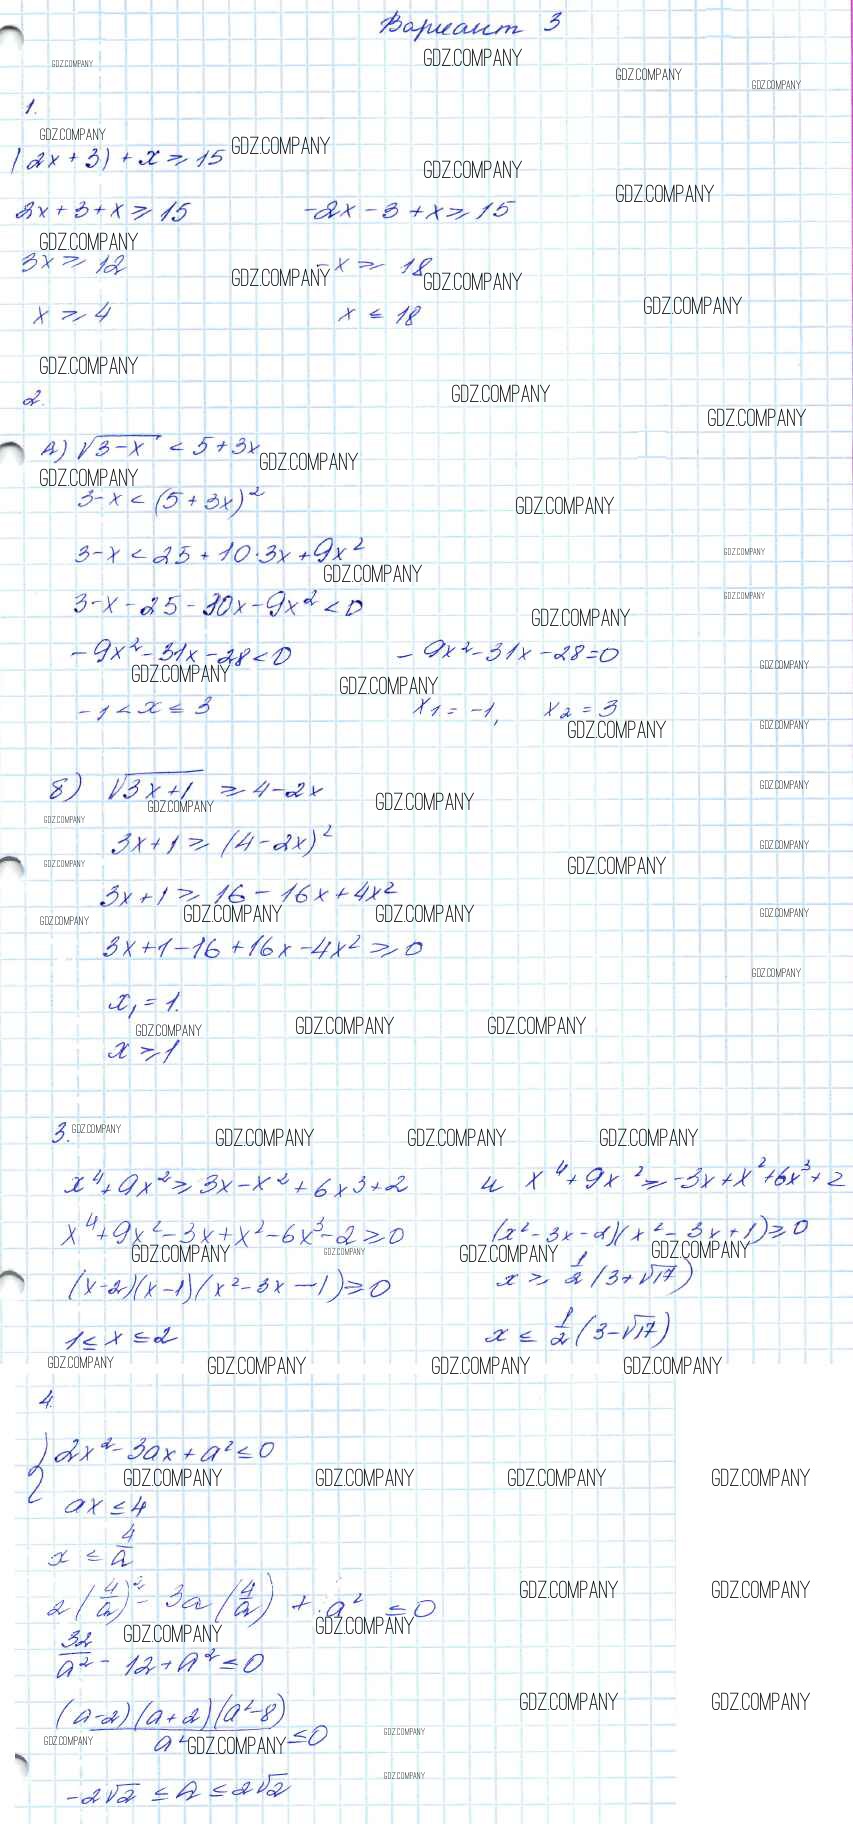 Вариант 3
1.
|2x + 3| + x ≥ 15
2x + 3 + x ≥ 15 -2x - 3 + x ≥ 15
3x ≥ 12 -x ≥ 18
x ≥ 4 x ≤ 18
2.
А) √3-x < 5 + 3x
3-x < (5 + 3x)²
3-x < 25 + 10·3x + 9x²
3-x - 25 - 30x - 9x² < 0
-9x² - 31x - 28 < 0 -9x² - 31x - 28 = 0
-1 < x ≤ 3 x₁ = -1, x₂ = 3
б) √3x+1 ≥ 4-2x
3x+1 ≥ (4-2x)²
3x+1 ≥ 16 - 16x + 4x²
3x+1-16+16x-4x² ≥ 0
x₁ = 1.
x ≥ 1
3.
x⁴+9x² ≥ 3x-x²+6x³+2 и x⁴+9x² ≥ -3x+x²+6x³+2
x⁴+9x²-3x+x²-6x³-2 ≥ 0 (x²-3x-2)(x²-3x+1) ≥ 0
(x-2)(x-1)(x²-3x-1) ≥ 0 x ≥ 1/2 (3+√17)
1 ≤ x ≤ 2 x ≤ 1/2 (3-√17)
4.
{ 2x²-3ax+a² ≤ 0
ax ≤ 4
x ≤ 4/a
2(4/a)² - 3a(4/a) + a² ≤ 0
32/a² - 12 + a² ≤ 0
(a-2)(a+2)(a²-8)/a² ≤ 0
-2√2 ≤ a ≤ 2√2
GDZ.COMPANY